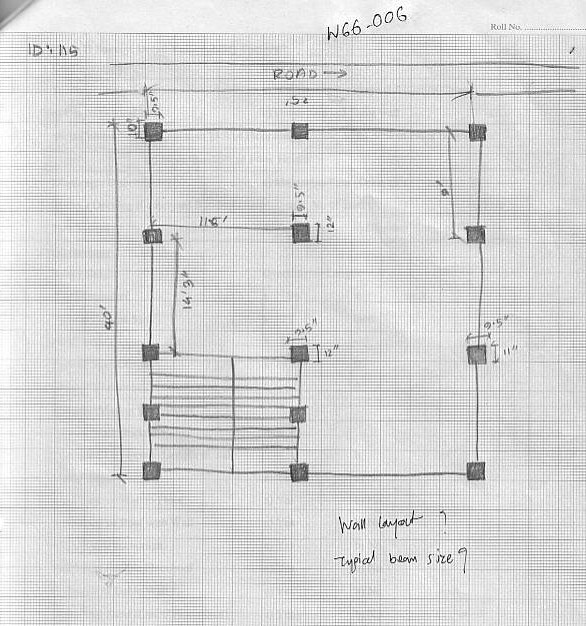 W66-006
Roll No.
ID: 115
ROAD →
25'
9.5"
10"
9.5"
9'
11.5'
12"
14'3"
40'
9.5"
12"
9.5"
11"
Wall layout ?
Typical beam size ?